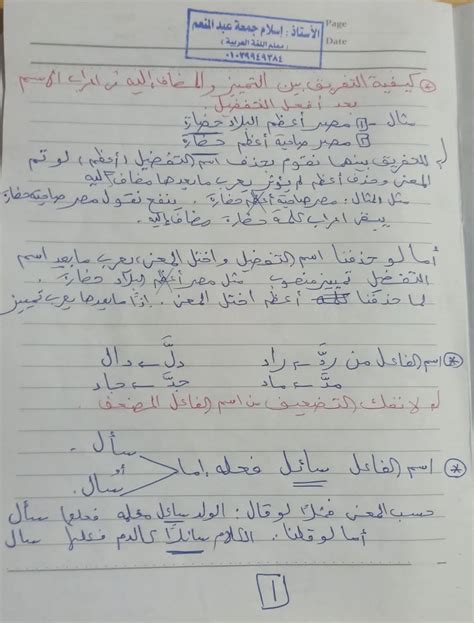 Page
Date
الأستاذ : إسلام جمعة عبد المنعم
( معلم اللغة العربية )
٠١٠٣٩٩٤٩٣٨٤
* كيفية التفريق بين التمييز والمضاف إليه فى إعراب الاسم
بعد أفعل التفضيل
مثال ← 1 مصر أعظم البلاد حضارة
2 مصر صاحبة أعظم حضارة
للتفريق بينهما نقوم بحذف اسم التفضيل (أعظم) لو تم
المعنى وحذف أعظم لم يؤثر يعرب ما بعدها مضاف إليه
مثل المثال : مصر صاحبة أعظم حضارة . ينفع نقول مصر صاحبة حضارة
يبقى إعراب كلمة حضارة مضاف إليه.
أما لو حذفنا اسم التفضيل واختل المعنى يعرب ما بعد اسم
التفضيل تمييز منصوب مثل مصر أعظم البلاد حضارة .
لما حذفنا أعظم اختل المعنى . إذًا ما بعدها يعرب تمييز
* اسم الفاعل من ردَّ ← راد دلَّ ← دال
مدَّ ← ماد جدَّ ← جاد
لا نفك التضعيف من اسم الفاعل المضعف .
* اسم الفاعل سائل فعله إما سأل .
أو سال .
حسب المعنى فمثلًا لو قال : الولد سائل معلمه فعلها سأل
أما لو قلنا : الكلام سائلًا كالدم فعلها سال
1